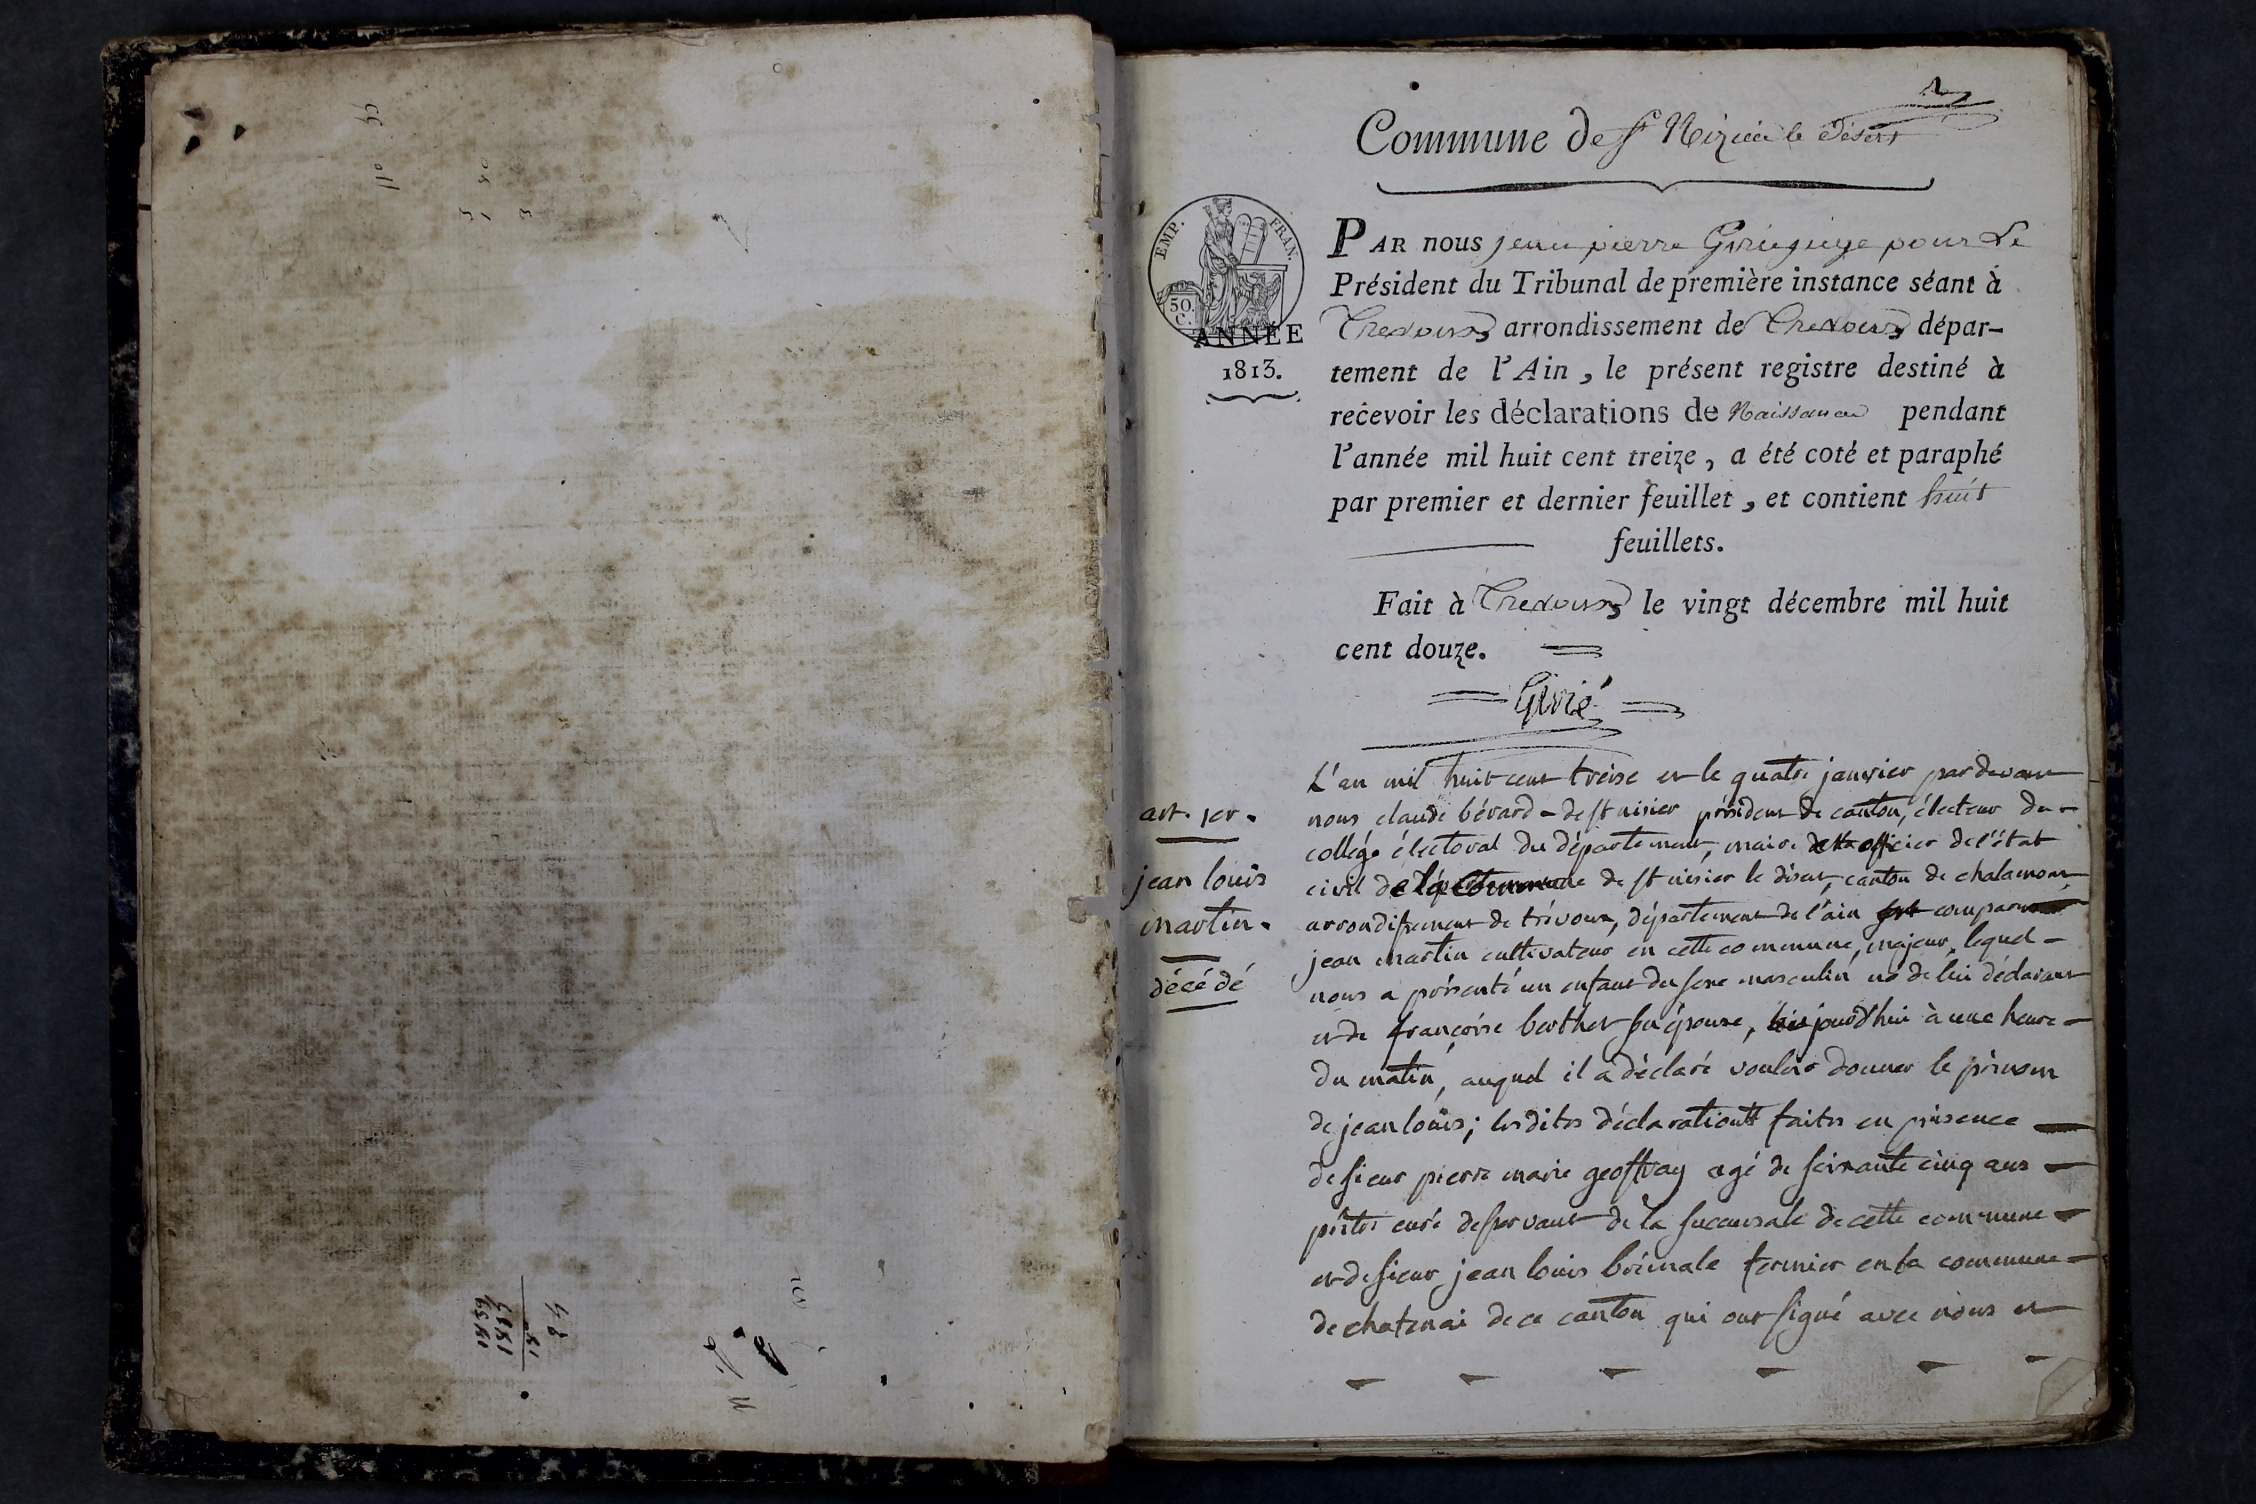 Commune de St Nizier le Désert
EMP. FRAN.
50 C.
ANNÉE
1813.
PAR nous jean pierre pour Le
Président du Tribunal de première instance séant à
Trevoux arrondissement de Trevoux dépar-
tement de l'Ain, le présent registre destiné à
recevoir les déclarations de Naissance pendant
l'année mil huit cent treize, a été coté et paraphé
par premier et dernier feuillet, et contient huit
feuillets.
Fait à Trevoux le vingt décembre mil huit
cent douze.
Givié
art. 1er.
jean louis
martin.
décédé
L'an mil huit cent treise et le quatre janvier pardevant
nous claude bérard de st nisier président de canton, électeur du
collége électoral du département, maire officier de l'état
civil de la Commune de st nisier le désert, canton de chalamont,
arrondissement de trévoux, département de l'ain est comparu
jean martin cultivateur en cette commune, majeur, lequel
nous a présenté un enfant du sexe masculin né de lui déclarant
et de françoise berthet son épouse, jourd'hui à une heure
du matin, auquel il a déclaré vouloir donner le prénom
de jean louis; lesdites déclarations faites en présence
de sieur pierre marie geoffray agé de soixante cinq ans
prêtre curé desservant de la succursale de cette commune
et de sieur jean louis brénale fermier en la commune
de chatenai de ce canton qui ont signé avec nous et